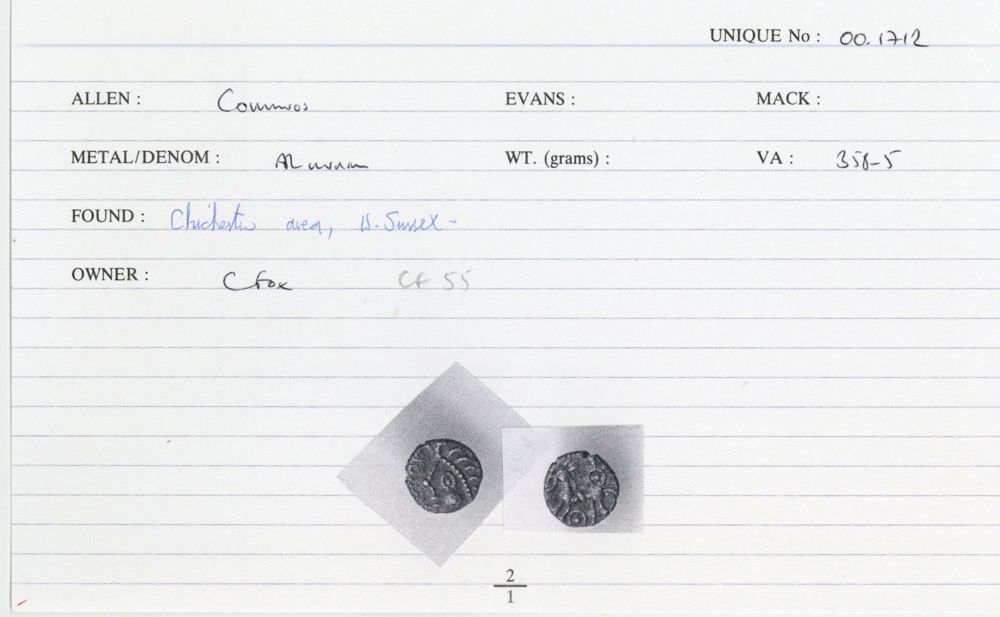 UNIQUE No : 00.1712
ALLEN : Commios EVANS : MACK :
METAL/DENOM : AR WT. (grams) : VA : 358-5
FOUND : Chichester area, W. Sussex -
OWNER : C Fox CF 55
2
1